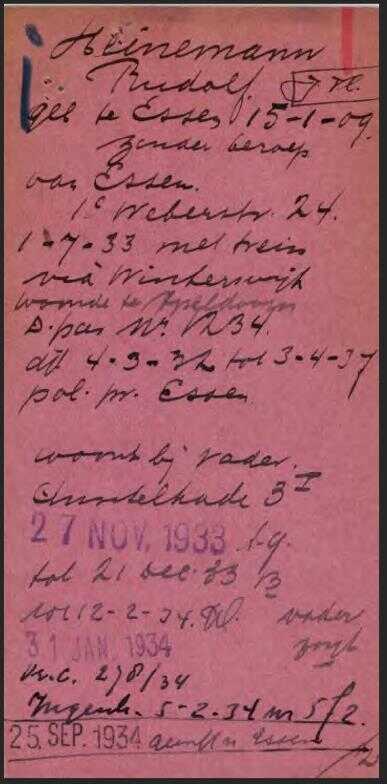 Heinemann
Rudolf. J.H.
geb te Essen 15-1-09.
zonder beroep
van Essen.
1e Weberstr. 24.
1-7-33 met trein
via Winterswijk
woonde te Apeldoorn
D. pas Nr. 1234.
dd 4-3-32 tot 3-4-37
pol. pr. Essen
woont bij vader.
Amstelkade 3 I
27 NOV. 1933 t.g.
tot 21 Dec. 33
tot 12-2-34. vader
31 JAN. 1934 zorgt
278/34
Ingeuh. 5-2-34 nr 512.
25. SEP. 1934 Essen